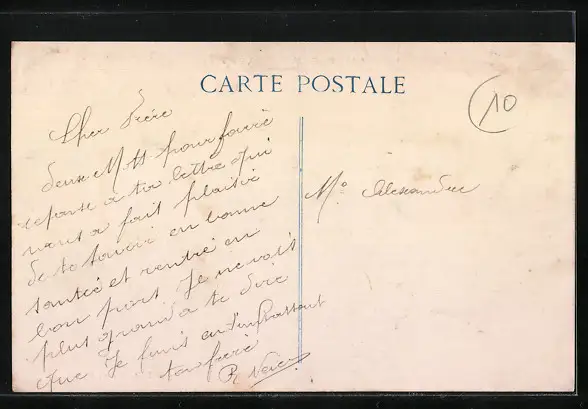 CARTE POSTALE
10
Cher Frère
deux Mtt pour faire
réponse a ta lettre qui
nous a fait plaisir
de te savoir en bonne
santée et rentré en
bon port Je ne vois
plus grand a te dire
que Je finis en t'embrassant
ton frère
Mr Alexandre